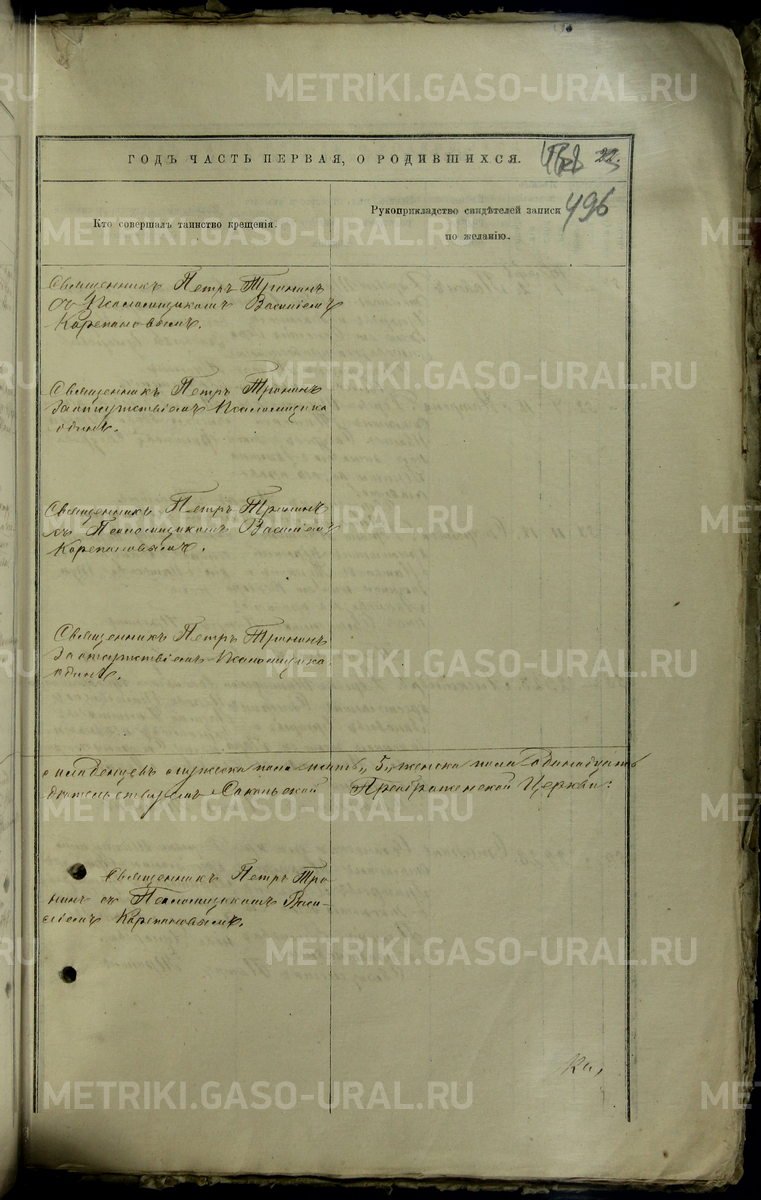 ГОДЪ ЧАСТЬ ПЕРВАЯ, О РОДИВШИХСЯ.
22.
496
Кто совершалъ таинство крещенія.
Рукоприкладство свидѣтелей записи
по желанію.
Священникъ Петръ Тронинъ
съ Псаломщикомъ Василіемъ
Карепановымъ.
Священникъ Петръ Тронинъ
за отсутствіемъ Псаломщика
одинъ.
Священникъ Петръ Тронинъ
съ Псаломщикомъ Василіемъ
Карепановымъ.
Священникъ Петръ Тронинъ
за отсутствіемъ Псаломщика
одинъ.
младенцевъ мужеска пола пять, 5, женска пола одинадцать
Преображенской Церкви:
Священникъ Петръ Тро-
нинъ съ Псаломщикомъ Васи-
ліемъ Карепановымъ.
METRIKI.GASO-URAL.RU